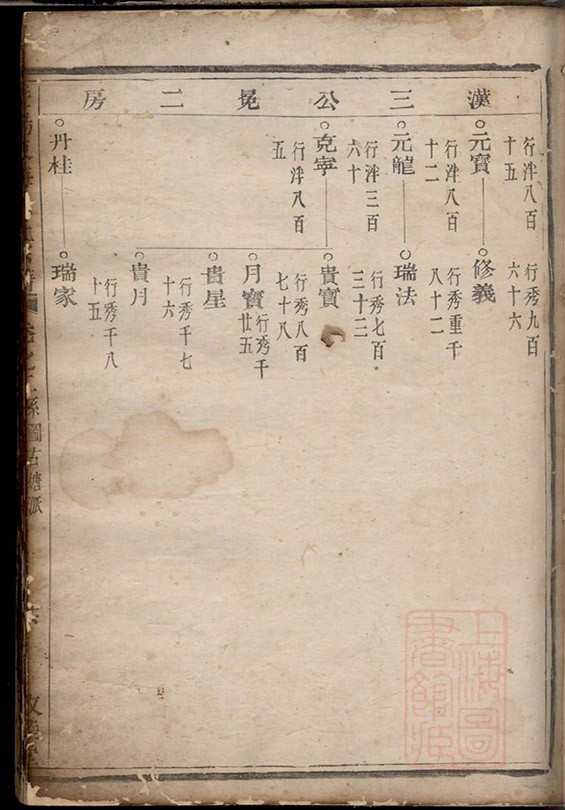 漢三公冕二房
元寶
行洋八百
十五
元龍
行洋八百
十二
克寧
行洋三百
六十
行洋八百
五
丹桂
修義
行秀九百
六十六
瑞法
行秀重千
八十二
貴寶
行秀七百
三十三
月寶
行秀八百
七十八
貴星
行秀千
廿五
貴月
行秀千七
十六
瑞家
行秀千八
十五
系圖古塘派
上海圖
書館藏